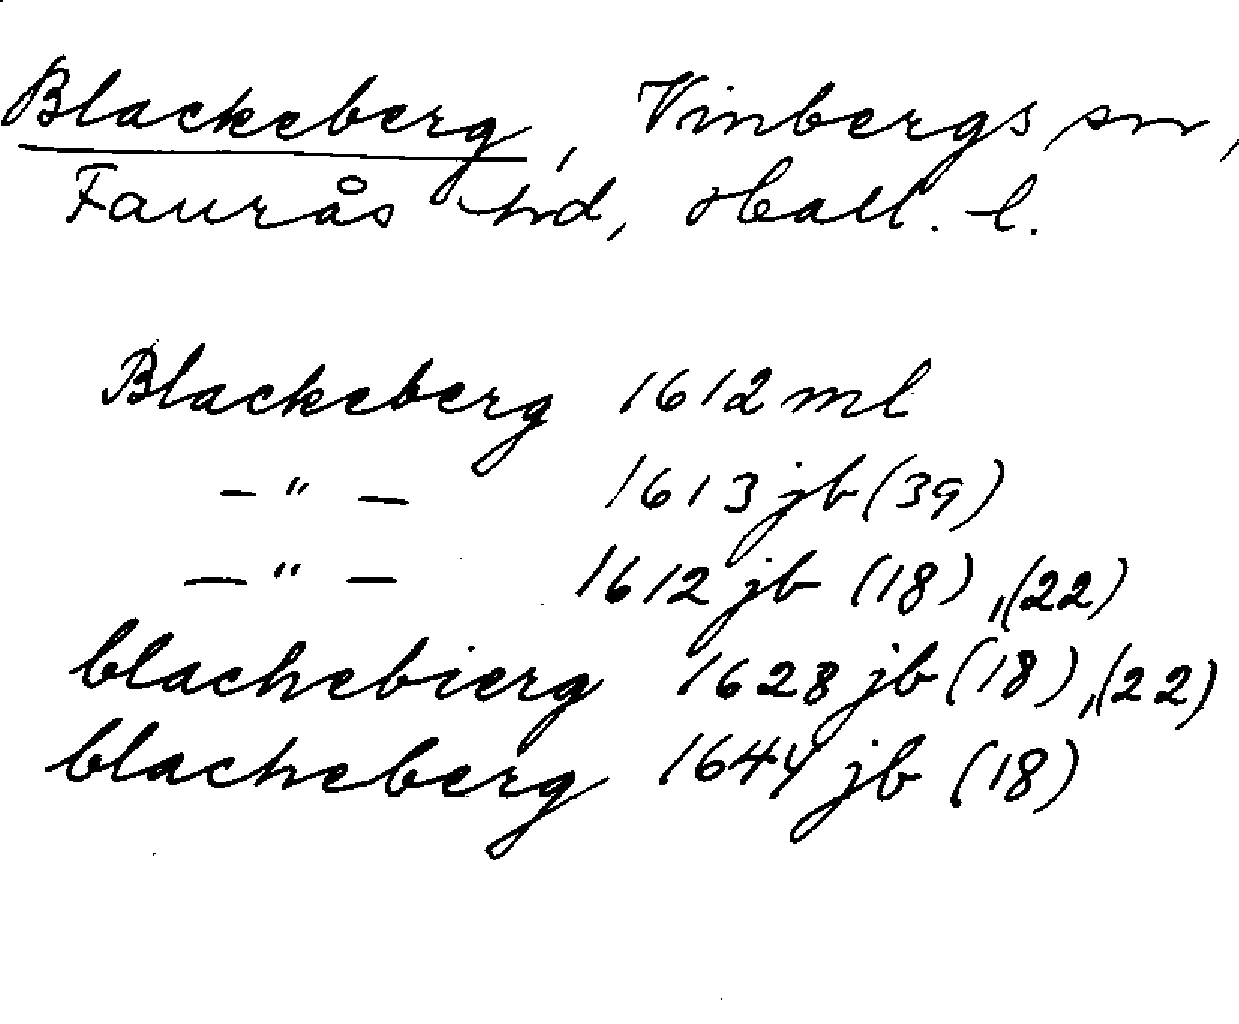 Blackeberg, Vinbergs sn,
Faurås hd, Hall. l.
Blackeberg 1612 ml
—"— 1613 jb (39)
—"— 1612 jb (18), (22)
blachebierg 1628 jb (18), (22)
blacheberg 1644 jb (18)